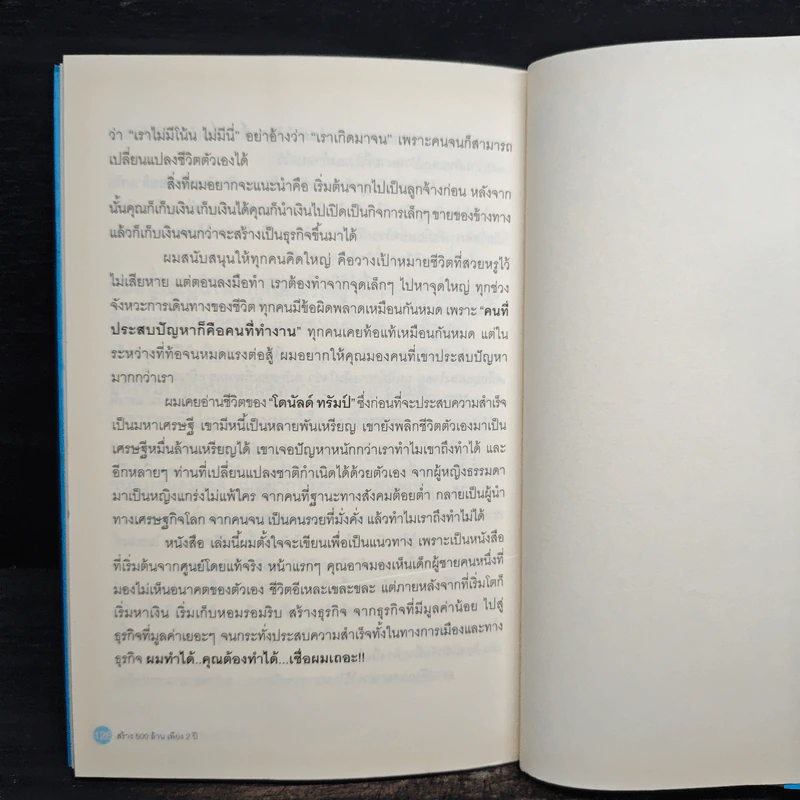 ว่า “เราไม่มีโน้น ไม่มีนี่” อย่าอ้างว่า “เราเกิดมาจน” เพราะคนจนก็สามารถ
เปลี่ยนแปลงชีวิตตัวเองได้
สิ่งที่ผมอยากจะแนะนำคือ เริ่มต้นจากไปเป็นลูกจ้างก่อน หลังจาก
นั้นคุณก็เก็บเงิน เก็บเงินได้คุณก็นำเงินไปเปิดเป็นกิจการเล็กๆ ขายของข้างทาง
แล้วก็เก็บเงินจนกว่าจะสร้างเป็นธุรกิจขึ้นมาได้
ผมสนับสนุนให้ทุกคนคิดใหญ่ คือวางเป้าหมายชีวิตที่สวยหรูไว้
ไม่เสียหาย แต่ตอนลงมือทำ เราต้องทำจากจุดเล็กๆ ไปหาจุดใหญ่ ทุกช่วง
จังหวะการเดินทางของชีวิต ทุกคนมีข้อผิดพลาดเหมือนกันหมด เพราะ “คนที่
ประสบปัญหาก็คือคนที่ทำงาน” ทุกคนเคยท้อแท้เหมือนกันหมด แต่ใน
ระหว่างที่ท้อจนหมดแรงต่อสู้ ผมอยากให้คุณมองคนที่เขาประสบปัญหา
มากกว่าเรา
ผมเคยอ่านชีวิตของ “โดนัลด์ ทรัมป์” ซึ่งก่อนที่จะประสบความสำเร็จ
เป็นมหาเศรษฐี เขามีหนี้เป็นหลายพันเหรียญ เขายังพลิกชีวิตตัวเองมาเป็น
เศรษฐีหมื่นล้านเหรียญได้ เขาเจอปัญหาหนักกว่าเราทำไมเขาถึงทำได้ และ
อีกหลายๆ ท่านที่เปลี่ยนแปลงชาติกำเนิดได้ด้วยตัวเอง จากผู้หญิงธรรมดา
มาเป็นหญิงแกร่งไม่แพ้ใคร จากคนที่ฐานะทางสังคมต้อยต่ำ กลายเป็นผู้นำ
ทางเศรษฐกิจโลก จากคนจน เป็นคนรวยที่มั่งคั่ง แล้วทำไมเราถึงทำไม่ได้
หนังสือ เล่มนี้ผมตั้งใจจะเขียนเพื่อเป็นแนวทาง เพราะเป็นหนังสือ
ที่เริ่มต้นจากศูนย์โดยแท้จริง หน้าแรกๆ คุณอาจมองเห็นเด็กผู้ชายคนหนึ่งที่
มองไม่เห็นอนาคตของตัวเอง ชีวิตอีเหละเขละขละ แต่ภายหลังจากที่เริ่มโตก็
เริ่มหาเงิน เริ่มเก็บหอมรอมริบ สร้างธุรกิจ จากธุรกิจที่มีมูลค่าน้อย ไปสู่
ธุรกิจที่มูลค่าเยอะๆ จนกระทั่งประสบความสำเร็จทั้งในทางการเมืองและทาง
ธุรกิจ ผมทำได้..คุณต้องทำได้...เชื่อผมเถอะ!!
สร้าง 500 ล้าน เพียง 2 ปี